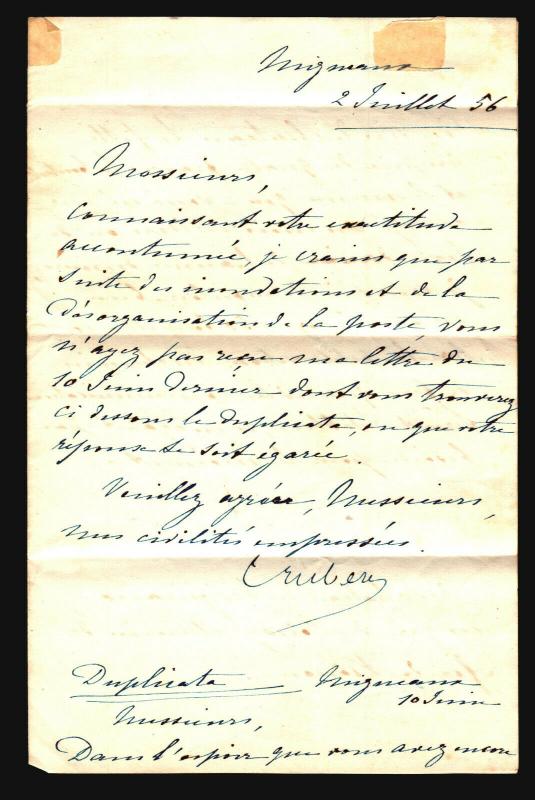 Migneaux
2 Juillet 56
Messieurs,
Connaissant votre exactitude
accoutumée, je crains que par
suite des inondations et de la
désorganisation de la poste, vous
n'ayez pas reçu ma lettre du
10 Juin dernier dont vous trouverez
ci dessous le duplicata, ou que votre
réponse se soit égarée.
Veuillez agréer, Messieurs,
mes civilités empressées.
Duplicata Migneaux
10 Juin
Messieurs,
Dans l'espoir que vous avez encore